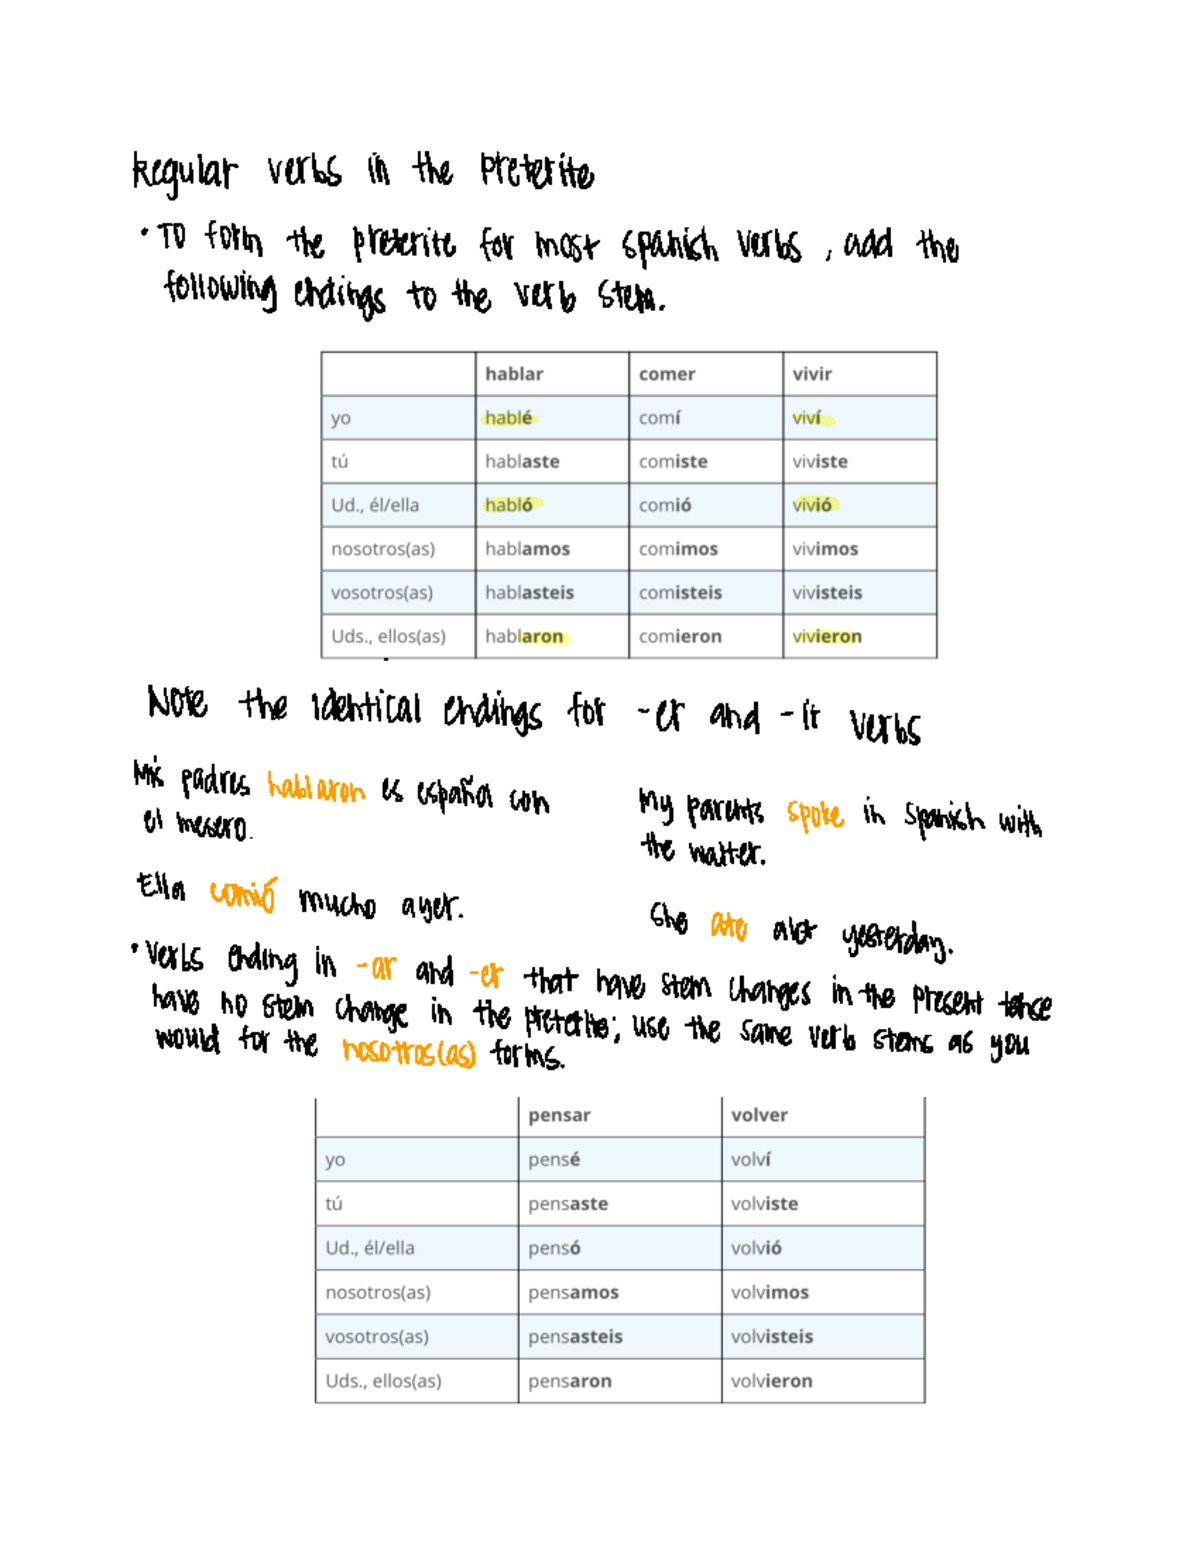 Regular verbs in the preterite
• To form the preterite for most spanish verbs, add the
following endings to the verb stem.
hablar comer vivir
yo hablé comí viví
tú hablaste comiste viviste
Ud., él/ella habló comió vivió
nosotros(as) hablamos comimos vivimos
vosotros(as) hablasteis comisteis vivisteis
Uds., ellos(as) hablaron comieron vivieron
Note the identical endings for -er and -ir verbs
Mis padres hablaron es español con
el mesero.
My parents spoke in Spanish with
the waiter.
Ella comió mucho ayer.
She ate alot yesterday.
• Verbs ending in -ar and -er that have stem changes in the present tense
have no stem change in the preterite; use the same verb stems as you
would for the nosotros(as) forms.
pensar volver
yo pensé volví
tú pensaste volviste
Ud., él/ella pensó volvió
nosotros(as) pensamos volvimos
vosotros(as) pensasteis volvisteis
Uds., ellos(as) pensaron volvieron